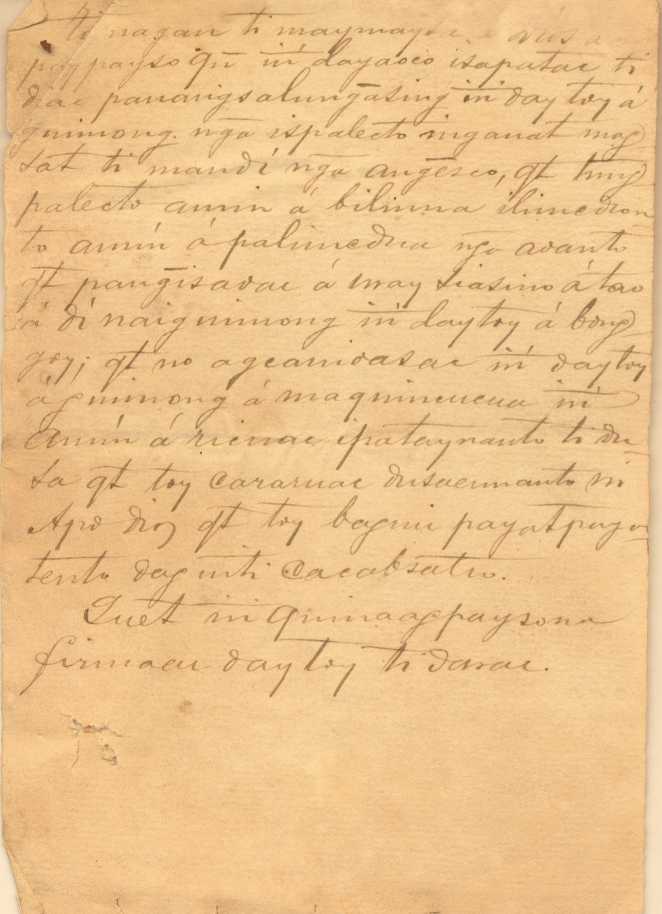 ti nagan ti maymaysa á Dios a
paypayso qñ iti dayaoco isapatac ti
diac panangsalungasing iti daytoy á
guimong. nga ispalecto inganat mag
sat ti mandí nga angesco, qt tung
palecto amin á bilinna ilimedcon
to amin á palimedna nga avanto
qt pangisavac á uray siasino á tao
á dí naiguimong iti daytoy á bung
goy; qt no agcamaasac iti daytoy
á guimong á maquincucua iti
amin á ricnac ipataynanto ti du
sa qt toy cararuac dusaennanto ni
Apo Dios qt toy baguic payatpaya
tento dagiiti cacabsatco.
Suet iti quinaagpaysona
firmaac daytoy ti darac.